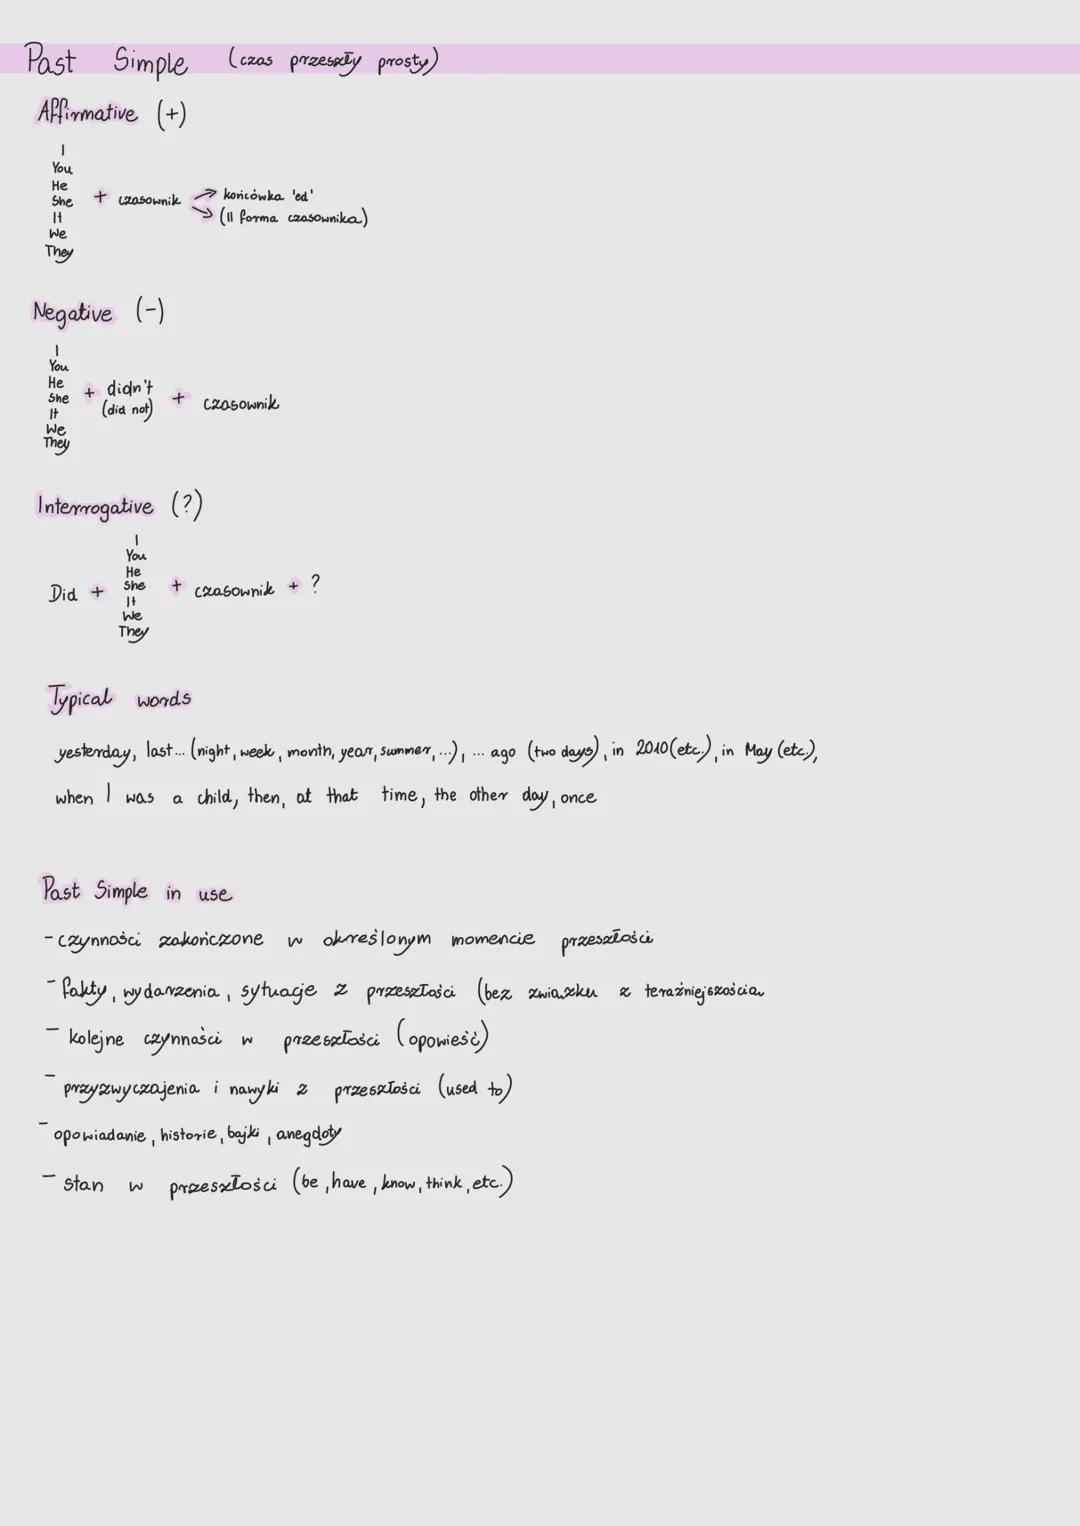 Past Simple (czas przeszły prosty)
Affirmative (+)
I
You
He
She
It
We
They
+ czasownik
końcówka 'ed'
(II forma czasownika)
Negative (-)
I
You
He
She
It
We
They
+ didn't
(did not)
+ czasownik
Interrogative (?)
Did +
I
You
He
She
It
We
They
+ czasownik + ?
Typical words
yesterday, last... (night, week, month, year, summer, ...), ... ago (two days), in 2010 (etc.), in May (etc.),
when I was a child, then, at that time, the other day, once
Past Simple in use
- czynności zakończone w określonym momencie przeszłości
- fakty, wydarzenia, sytuacje z przeszłości (bez związku z teraźniejszością
- kolejne czynności w przeszłości (opowieść)
- przyzwyczajenia i nawyki z przeszłości (used to)
- opowiadanie, historie, bajki, anegdoty
- stan w przeszłości (be, have, know, think, etc.)